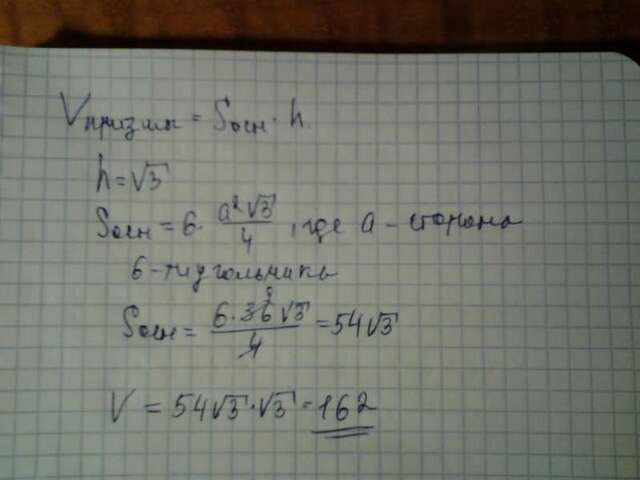 Vпризмы = Sосн · h.
h = √3
Sосн = 6 · a²√3/4, где a – сторона
6-тиугольника
Sосн = 6·36√3/4 = 54√3
9
V = 54√3 · √3 = 162